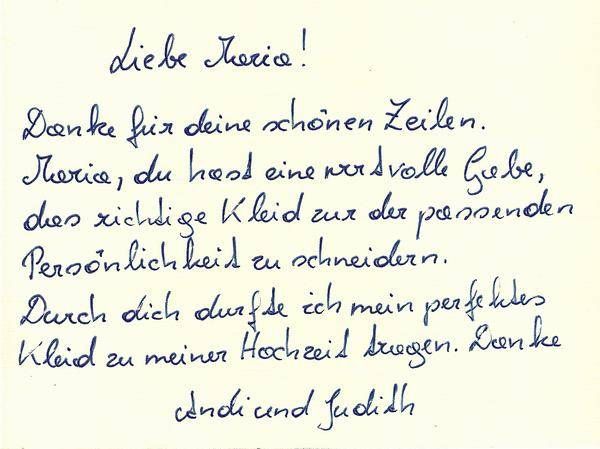 Liebe Maria!
Danke für deine schönen Zeilen.
Maria, du hast eine wertvolle Gabe,
das richtige Kleid zur der passenden
Persönlichkeit zu schneidern.
Durch dich durfte ich mein perfektes
Kleid zu meiner Hochzeit tragen. Danke
Andi und Judith